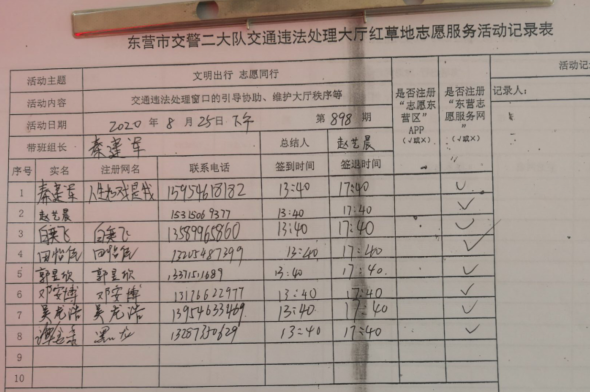 东营市交警二大队交通违法处理大厅红草地志愿服务活动记录表
活动主题 文明出行 志愿同行 是否注册“志愿东营区”APP（√或×） 是否注册“东营志愿服务网”（√或×） 活动记
活动内容 交通违法处理窗口的引导协助、维护大厅秩序等 记录人：
活动日期 2020年8月25日下午 第898期
带班组长 秦建军 总结人 赵艺晨
序号 实名 注册网名 联系电话 签到时间 签退时间
1 秦建军 15954618182 13:40 17:40 √
2 赵艺晨 15315069377 13:40 17:40 √
3 白云飞 白云飞 13589965860 13:40 17:40 √
4 13:40 17:40 √
5 郭昱欣 郭昱欣 13:40 17:40 √
6 邓安博 邓安博 13176622977 13:40 17:40 √
7 吴龙浩 吴龙浩 13954633469 13:40 17:40 √
8 黑龙 13287350629 13:40 17:40 √
9
10